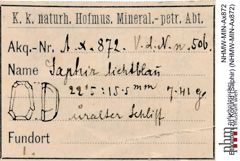 K. k. naturh. Hofmus. Mineral.-petr. Abt.
Akq.-Nr. A.x.872. V.d.N.n.506.
Name Saphir lichtblau
22·5:15·5 mm 7·41 g
uralter Schliff
Fundort
NHMW-MIN-Ax872
nhm